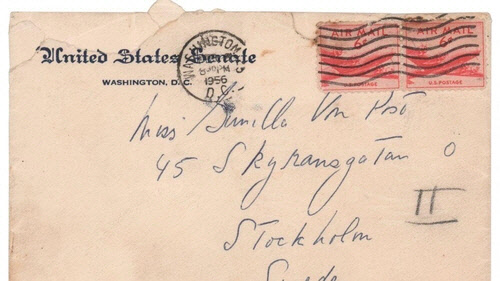 United States Senate
WASHINGTON, D.C.
WASHINGTON
PM
1956
D.C.
AIR MAIL
6¢
U.S. POSTAGE
AIR MAIL
6¢
U.S. POSTAGE
Miss Gunilla Von Post
45 Skyransgatan O
II
Stockholm
Swede